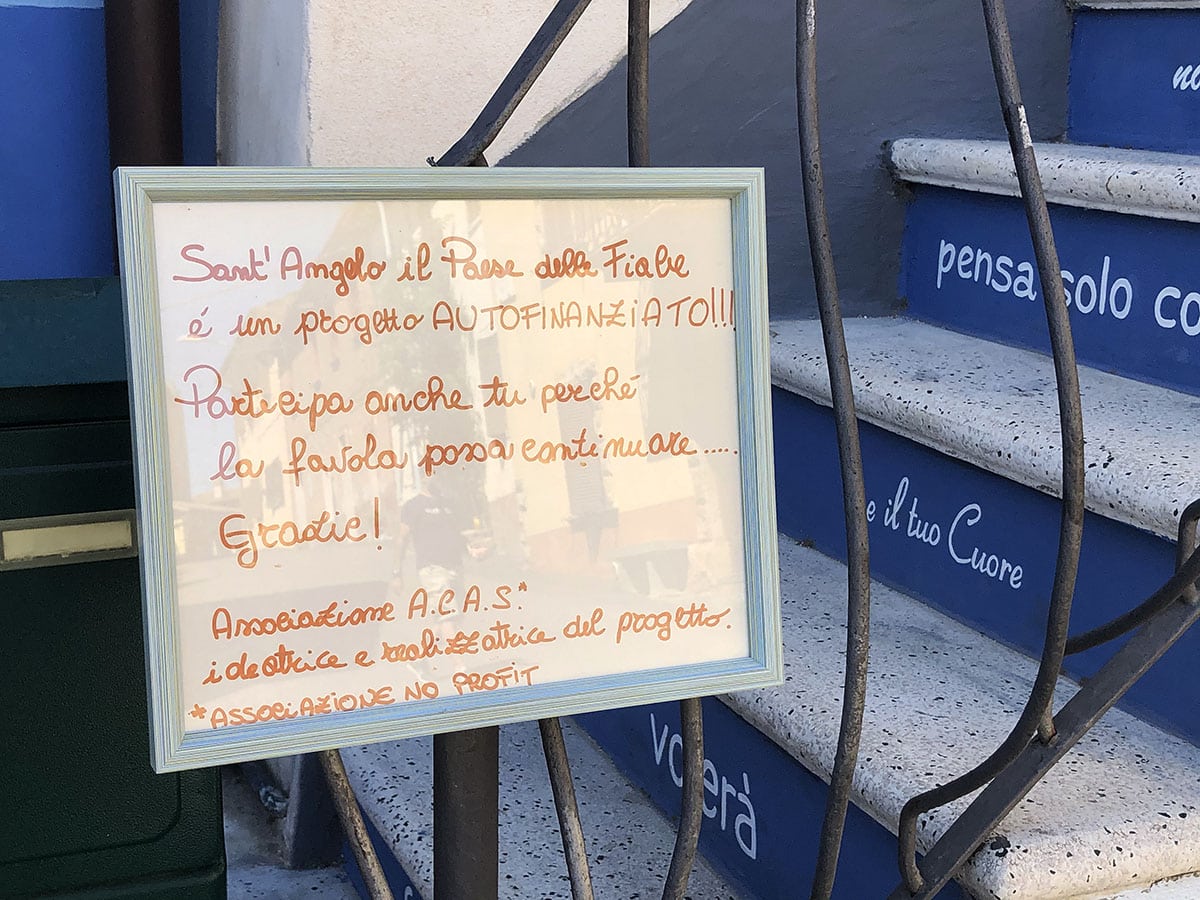 Sant'Angelo il Paese delle Fiabe
é un progetto AUTOFINANZIATO!!!
Partecipa anche tu perché
la favola possa continuare.....
Grazie!
Associazione A.C.A.S.*
ideatrice e realizzatrice del progetto.
*ASSOCIAZIONE NO PROFIT
pensa solo
e il tuo Cuore
volerà